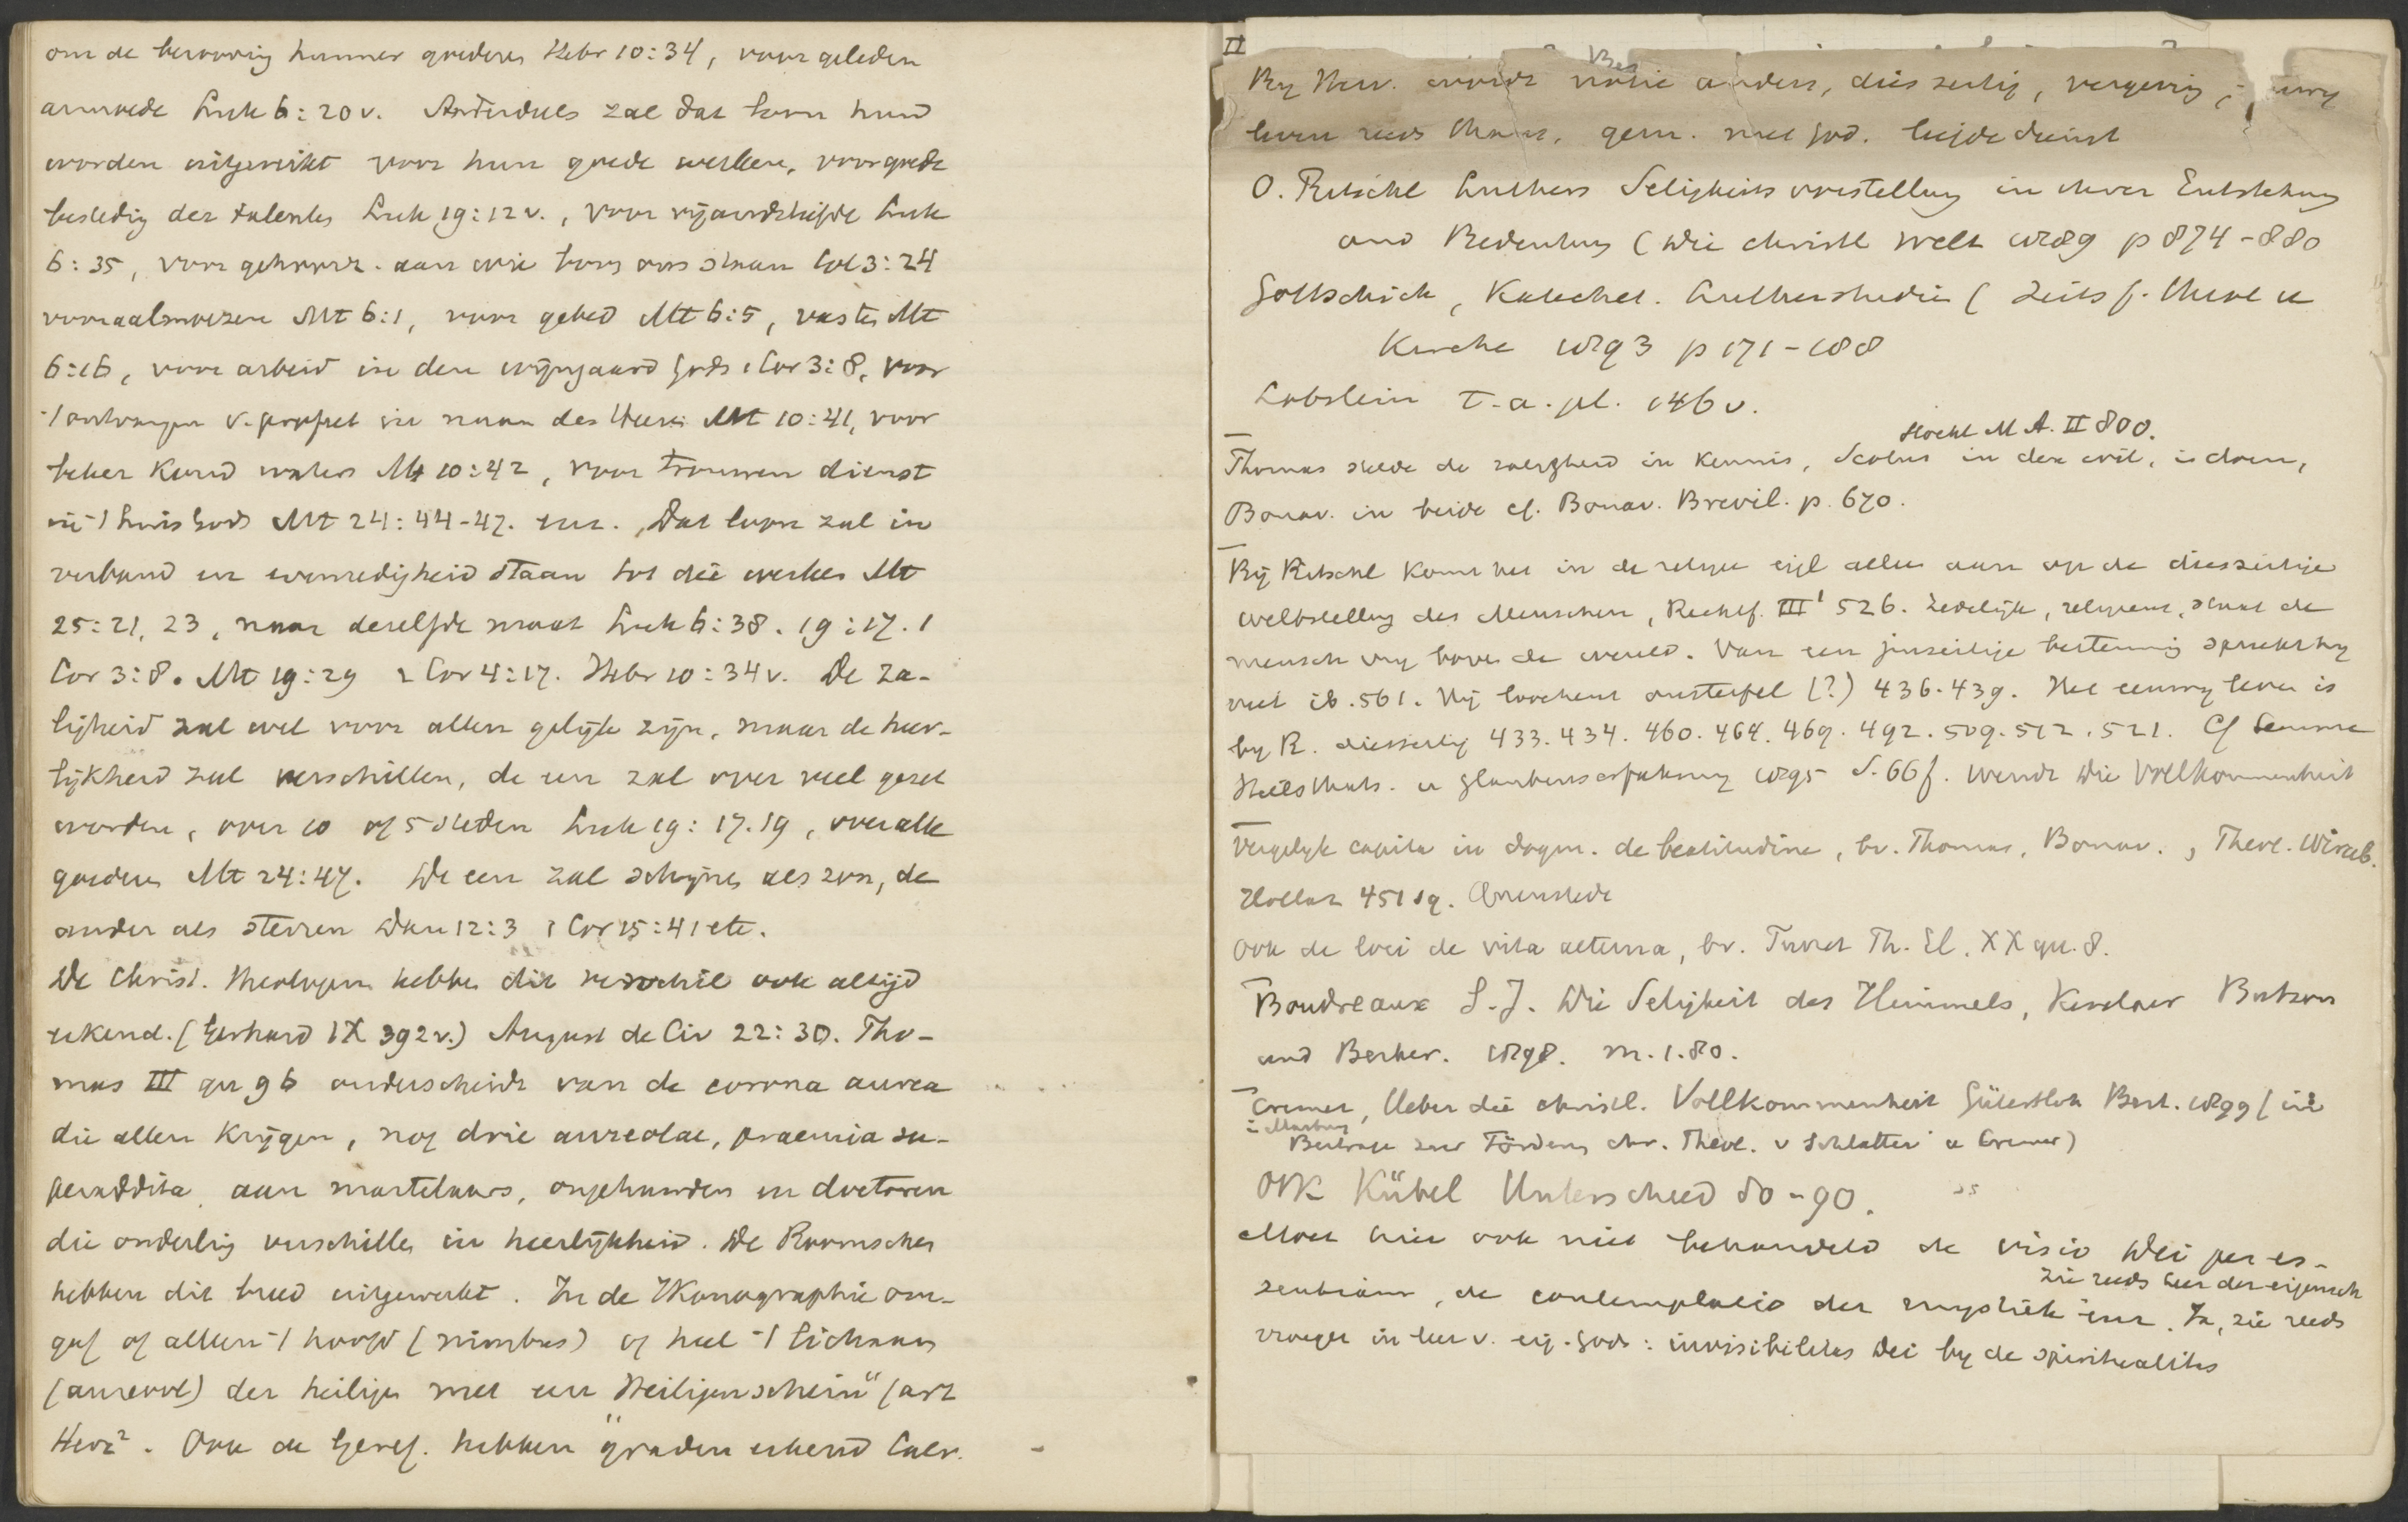 om de berooving hunner goederen Hebr 10:34, voor geleden
armoede Luk 6:20v. Anderdeels zal dat loon hun
worden uitgereikt voor hun goede werken, voor goede
besteding der talenten Luk 19:12v., voor vijandsliefde Luk
6:35, voor gehoorz. aan wie boven ons staan Col 3:24
voor aalmoezen Mt 6:1, voor gebed Mt 6:5, vasten Mt
6:16, voor arbeid in den wijngaard Gods 1 Cor 3:8, voor
't ontvangen v. profeet in naam des Heeren Mt 10:41, voor
beker koud waters Mt 10:42, voor trouwen dienst
in 't huis Gods Mt 24:44-47. enz. Dat loon zal in
verband en evenredigheid staan tot die werken Mt
25:21, 23, naar dezelfde maat Luk 6:38. 19:17. 1
Cor 3:8. Mt 19:29 2 Cor 4:17. Hebr 10:34v. De za-
ligheid zal wel voor allen gelijk zijn, maar de heer-
lijkheid zal verschillen, de een zal over veel gezet
worden, over 10 of 5 steden Luk 19:17.19, over alle
goederen Mt 24:47. De een zal schijnen als zon, de
ander als sterren Dan 12:3 1 Cor 15:41 etc.
De Christ. theologen hebben dit verschil ook altijd
erkend. (Gerhard IX 392v.) August de Civ 22:30. Tho-
mas III qu 96 onderscheidt van de corona aurea
die allen krijgen, nog drie aureolae, praemia su-
peraddita aan martelaars, ongehuwden en doctoren
die onderling verschillen in heerlijkheid. De Roomschen
hebben dit breed uitgewerkt. In de Ikonographie om-
gaf of alleen 't hoofd (nimbus) of heel 't lichaam
(aureool) der heiligen met een "Heiligenschein" (art
Herz². Ook de Geref. hebben graden erkend Calv.
II
By Herv. wordt notie anders, diesseitig, vergeving
leven reeds gem. met God. liefde dienst
O. Ritschl Luthers Seligkeitsvorstellung in ihrer Entstehung
und Bedeutung (Die christl Welt 1889 p 874-880
Gottschick, Katechet. Lutherstudien (Zeits f. Theol u
Kirche 1893 p 171-188
Lobstein t.a.pl. 146v.
Stöckl M A. II 800.
Thomas stelde de zaligheid in kennis, Scotus in den wil, in doen,
Bonav. in beide cf. Bonav. Brevil. p. 670.
Bij Ritschl komt het in de religie eigl alles aan op de diesseitige
Weltstellung des Menschen, Rechtf. III¹ 526. Zedelijk, religieus, staat de
mensch vrij boven de wereld. Van een jenseitige bestemming spreekt hij
niet ib. 561. Hij loochent onsterfel (?) 436. 439. Het eeuwig leven is
by R. diesseitig 433. 434. 460. 464. 469. 492. 509. 512. 521. Cf Lemme
Heilsthats. u Glaubenserfahrung 1895 S. 66f. Wendt Die Vollkommenheit
Vergelijk capita in dogm. de beatitudine, bv. Thomas, Bonav., Theol. Wirceb.
Hollaz 451 sq. Quenstedt
ook de loci de vita aeterna, bv. Turret Th. El. XX qu. 8.
Boudreaux S.J. Die Seligkeit des Himmels, Kevelaer Butzon
und Bercker. 1898. M. 1.80.
Cremer, Ueber die christl. Vollkommenheit Gütersloh Bert. 1899 (in
Beiträge zur Förderung chr. Theol. v Schlatter u Cremer)
Ook Kübel Unterschied 80-90.
Moet hier ook niet behandeld de visio Dei per es-
zie reeds leer der eigensch
sentiam, de contemplatio der mystiek enz. Ja, zie reeds
vroeger in leer v. eig. Gods: invisibilitas Dei by de spiritualitas